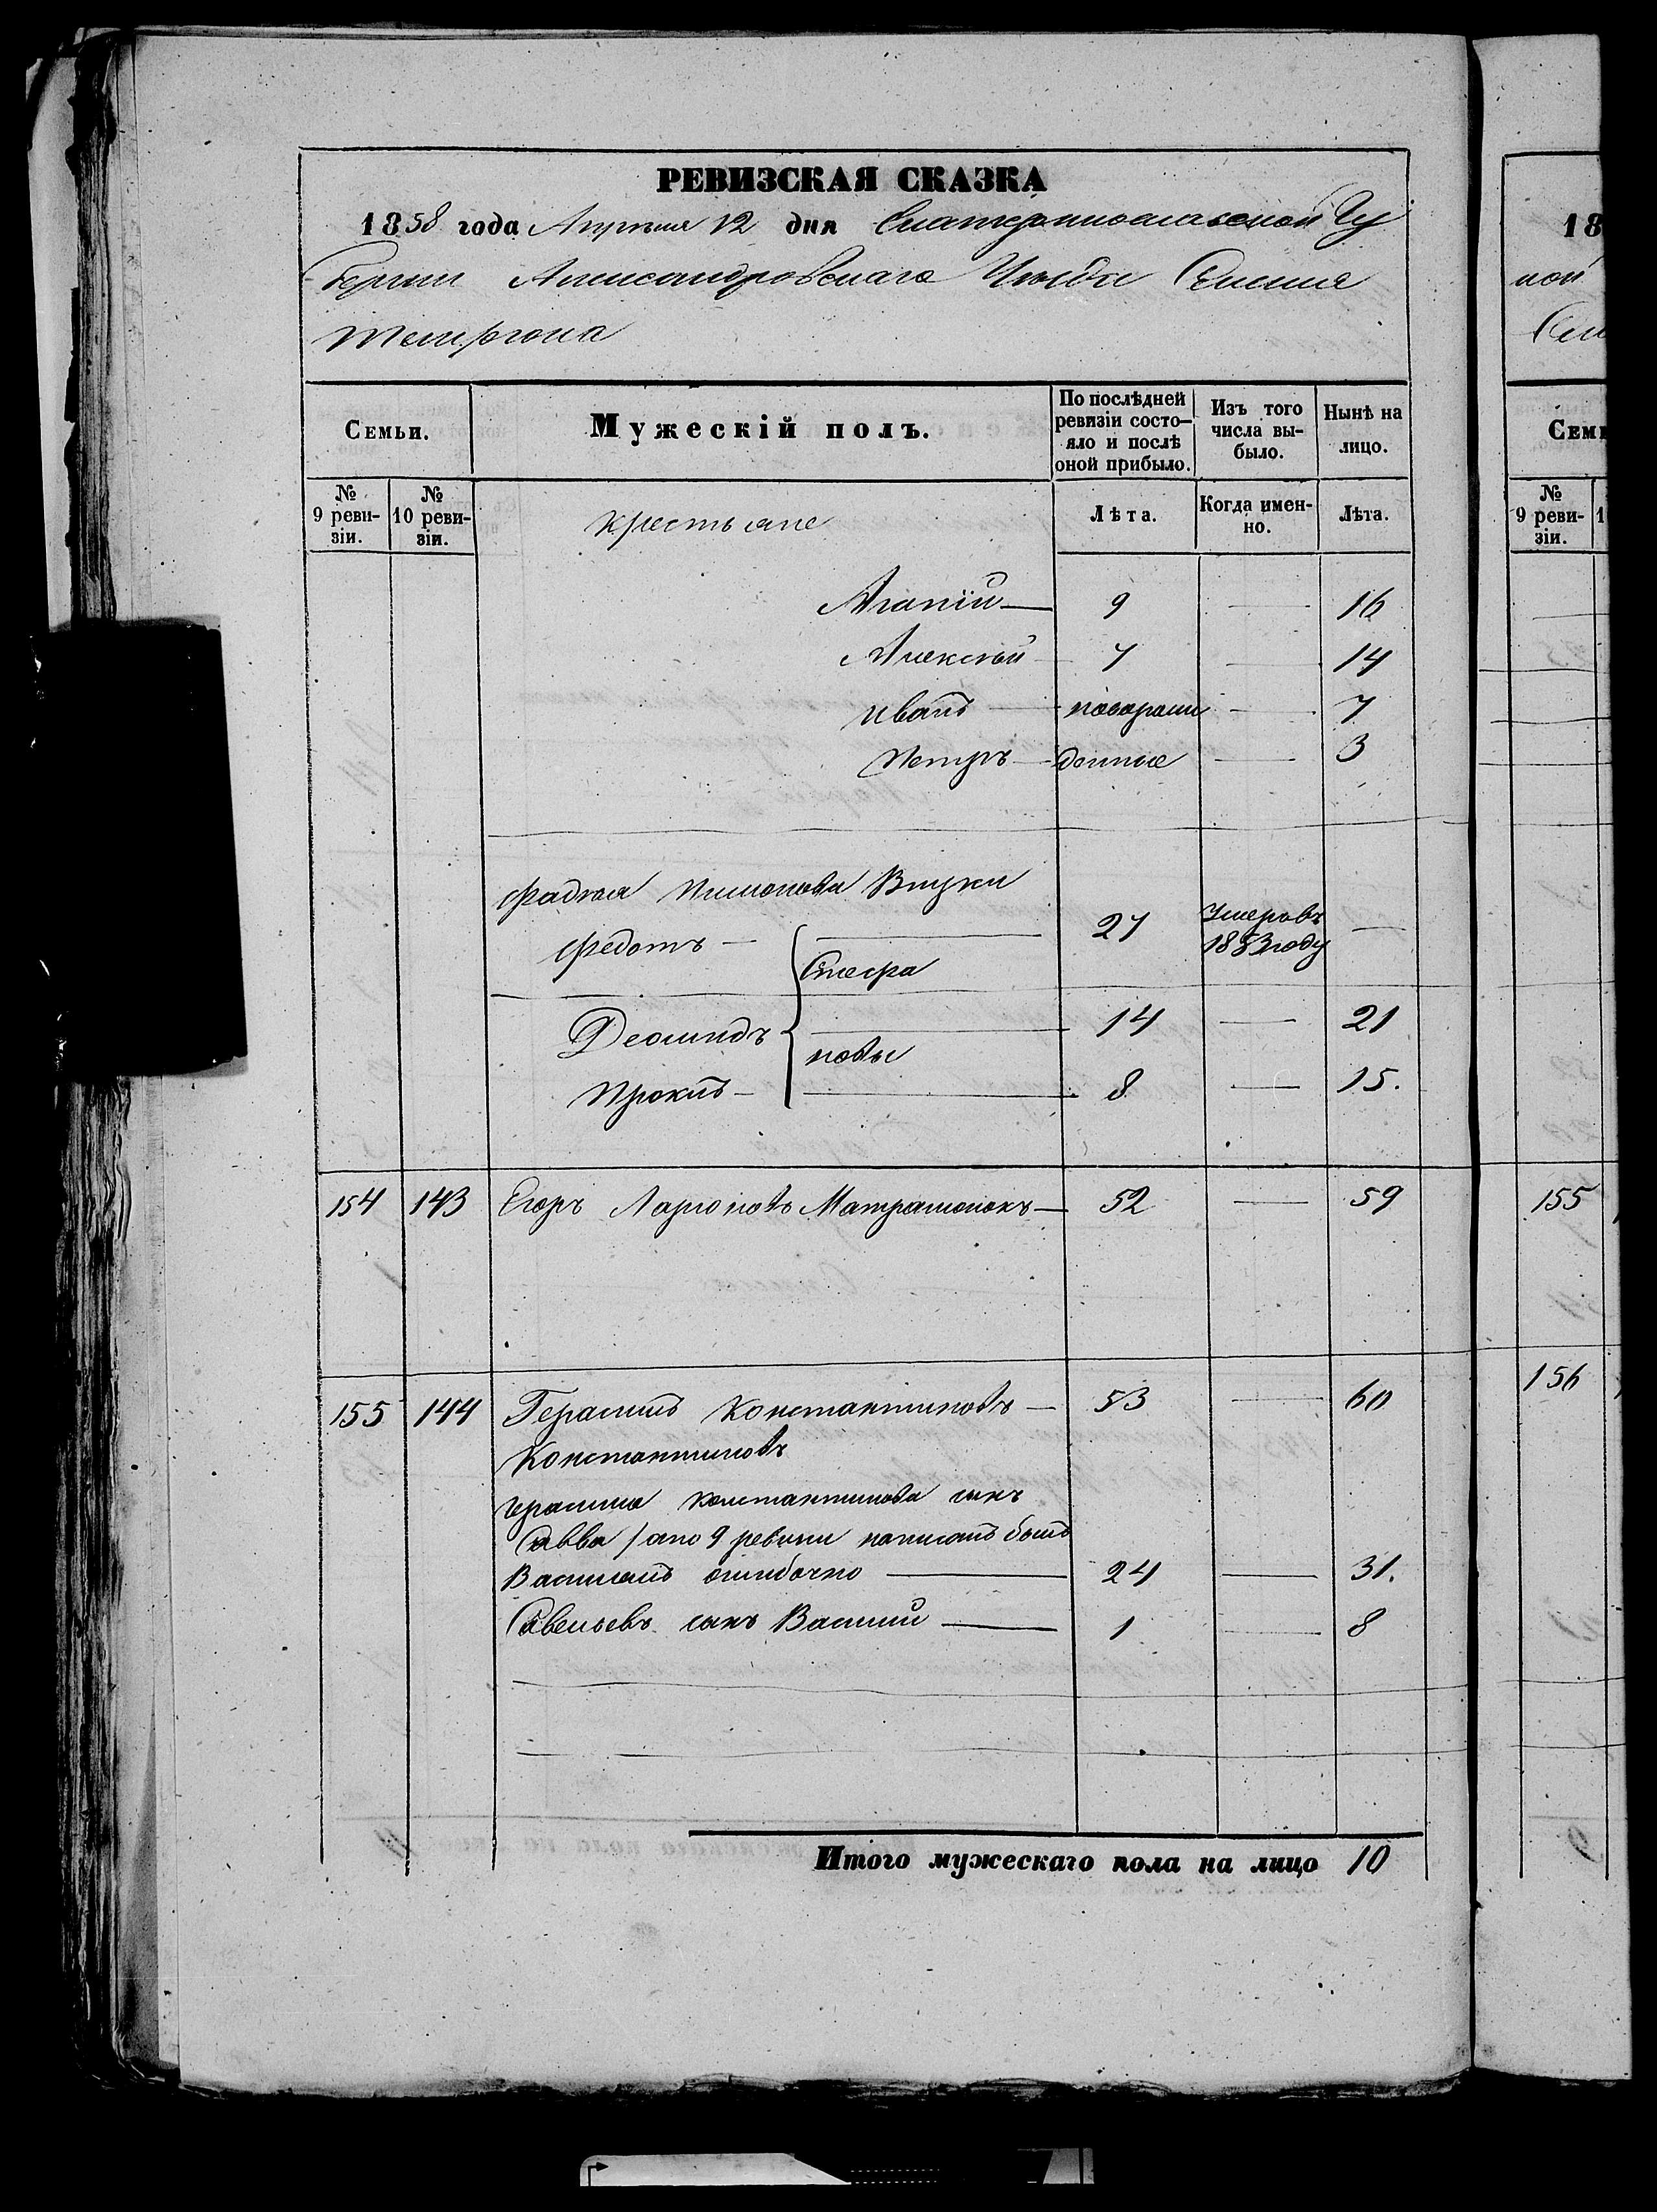 РЕВИЗСКАЯ СКАЗКА
1858 года Апреля 12 дня Екатеринославской Гу
берніи Александровскаго Уѣзда Селенія
Темрюка
Семьи.
Мужескій полъ.
По послѣдней ревизіи состо-яло и послѣ оной прибыло.
Изъ того числа вы-было.
Нынѣ на лицо.
№ 9 реви-зіи.
№ 10 реви-зіи.
крестьяне
Лѣта.
Когда имен-но.
Лѣта.
Агапій — 9 — 16
Алексѣй — 7 — 14
Иванъ — новорож — 7
Петръ — донные — 3
Фадѣя Внуки
Федотъ — 27 Умеръ въ 1853 году —
Стефа
Деомидъ — 14 — 21
новы
Прокпъ — 8 — 15.
154 143 Егоръ Ларіоновъ — 52 — 59
155 144 Герасимъ Константиновъ — 53 — 60
Константиновъ
Герасима Константинова сынъ
Савва / а по 9 ревизіи написанъ былъ
Василіемъ ошибочно — 24 — 31.
Савельевъ сынъ Василій — 1 — 8
Итого мужескаго пола на лицо 10
18
ной
Сел
Семь
№ 9 реви-зіи.
1
155
156